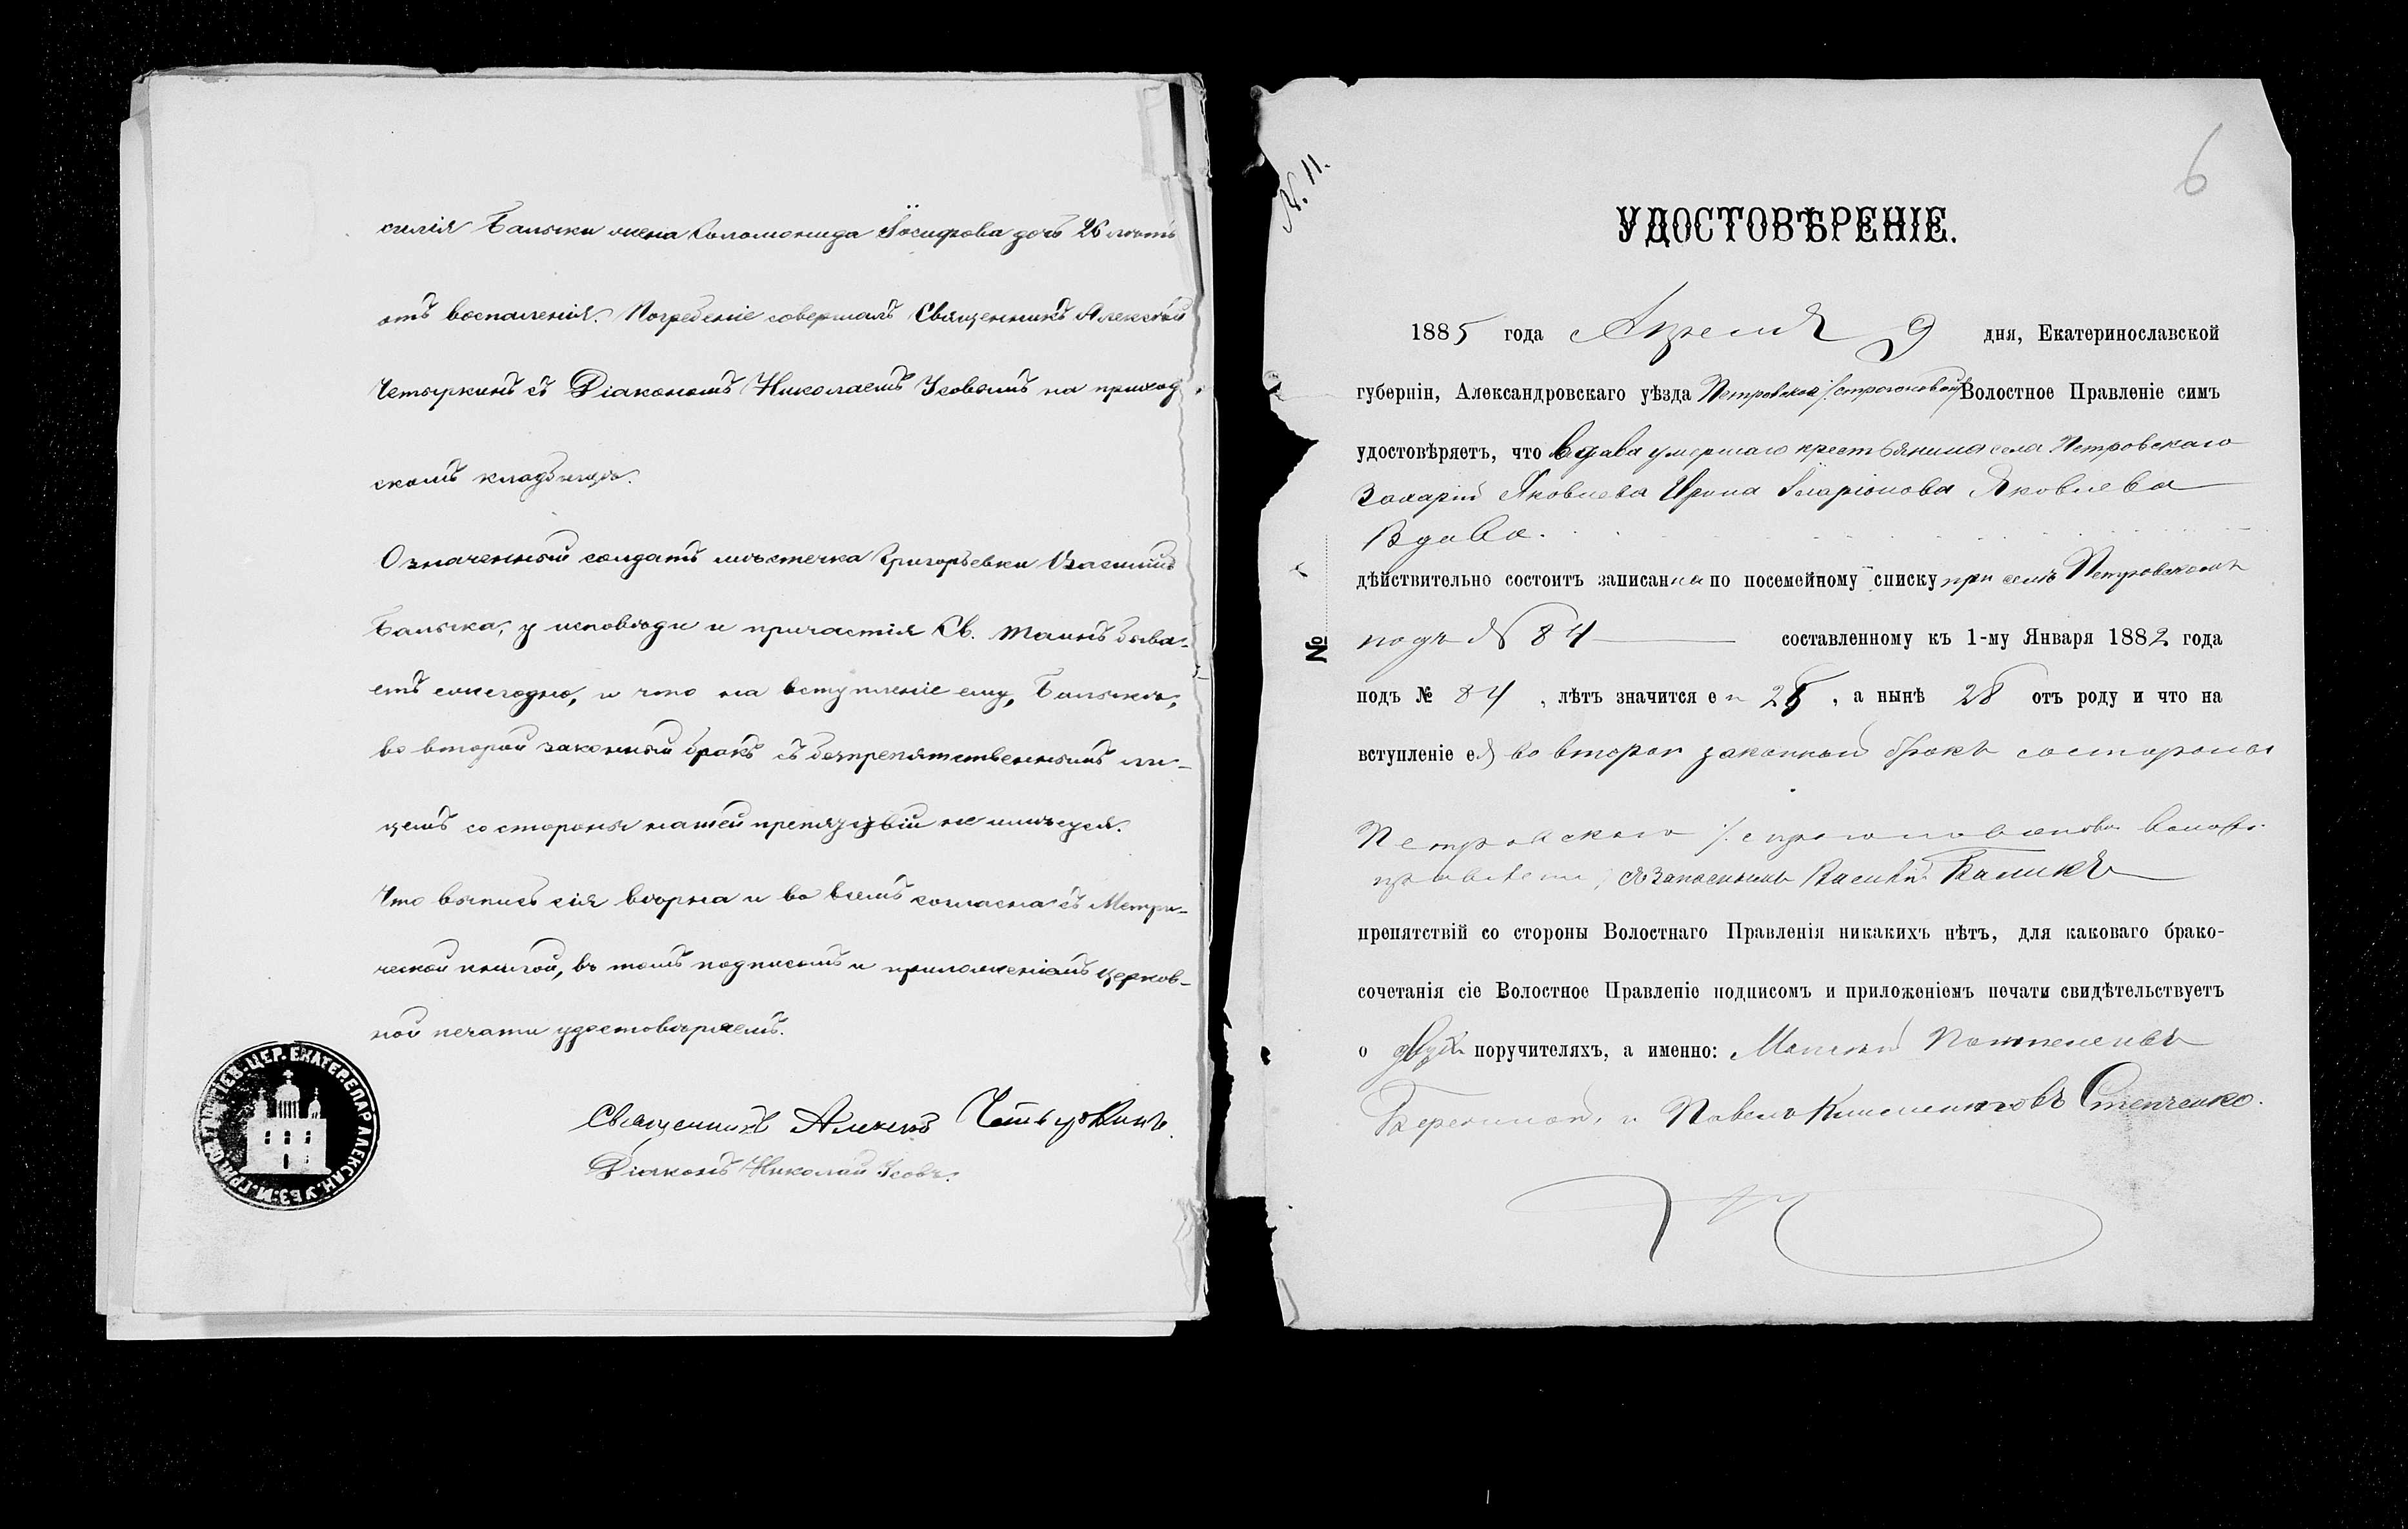 силія Балыки жена Соломонида Іосифова дочь 26 лѣтъ
отъ воспаленія. Погребеніе совершалъ Священникъ Алексѣй
Четыркинъ съ Діакономъ Николаемъ Усовымъ на приход
скомъ кладбищѣ.
Означенный солдатъ мѣстечка Григорьевки Василій
Балыка, у исповѣди и причастія Св. Таинъ быва-
етъ ежегодно, и что на вступленіе ему, Балыкѣ,
во второй законный бракъ съ безпрепятственнымъ ли-
цемъ со стороны нашей препятствій не имѣется.
Что выпись сія вѣрна и во всемъ согласна съ Метри-
ческой книгой, въ томъ подписомъ и приложеніемъ церков-
ной печати удостовѣряемъ.
Священникъ Алексѣй Четыркинъ.
Діаконъ Николай Усовъ.
ЦЕР. ЕКАТЕР. ЕПАР. АЛЕКСАН. УѢЗ.
6
№. 11.
УДОСТОВѢРЕНІЕ.
1885 года Апреля 9 дня, Екатеринославской
губерніи, Александровскаго уѣзда Петровское Волостное Правленіе симъ
удостовѣряетъ, что Вдова умершаго крестьянина села Петровскаго
Захарій Яковлева Ирина Иларіонова Яковлева
Вдова.
дѣйствительно состоитъ записанна по посемейному списку при селѣ Петровскомъ
№
подъ № 84 составленному къ 1-му Января 1882 года
подъ № 84, лѣтъ значится ей 25, а нынѣ 28 отъ роду и что на
вступленіе ея во второй законный бракъ состороны
Петровскаго
съ Запаснымъ Василій Балика
препятствій со стороны Волостнаго Правленія никакихъ нѣтъ, для каковаго брако-
сочетанія сіе Волостное Правленіе подписомъ и приложеніемъ печати свидѣтельствуетъ
о двухъ поручителяхъ, а именно:
и Павелъ Степченко.